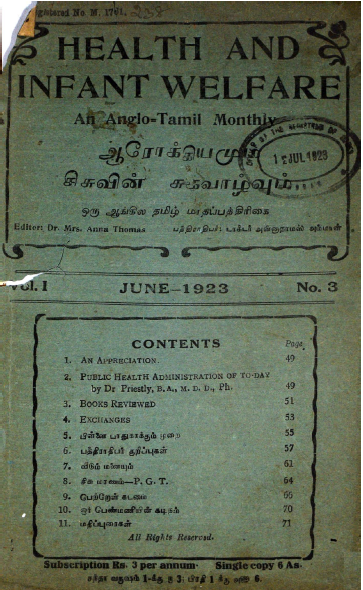 Registered No M. 1761.
HEALTH AND
INFANT WELFARE
An Anglo-Tamil Monthly
ஆரோக்கியமும்
சிசுவின் சுகவாழ்வும்
ஒரு ஆங்கில தமிழ் மாதப்பத்திரிகை
Editor: Dr. Mrs. Anna Thomas
பத்திராதிபர்: டாக்டர்
JUL 1923
Vol. I JUNE-1923 No. 3
CONTENTS Page
1. AN APPRECIATION. 49
2. PUBLIC HEALTH ADMINISTRATION OF TO-DAY
by Dr Priestly, B.A., M. D. D., Ph. 49
3. BOOKS REVIEWED 51
4. EXCHANGES 53
5. பிள்ளை பாதுகாக்கும் முறை 55
6. பத்திராதிபர் குறிப்புகள் 57
7. வீடும் மனையும் 61
8. சிசு மரணம்-P. G. T. 64
9. பெற்றோர் கடமை 66
10. ஓர் பெண்மணியின் கடிதம் 70
11. மதிப்புரைகள் 71
All Rights Reserved.
Subscription Rs. 3 per annum. Single copy 6 As.
சந்தா வருஷம் 1-க்கு ரூ 3; பிரதி 1 க்கு அணா 6.